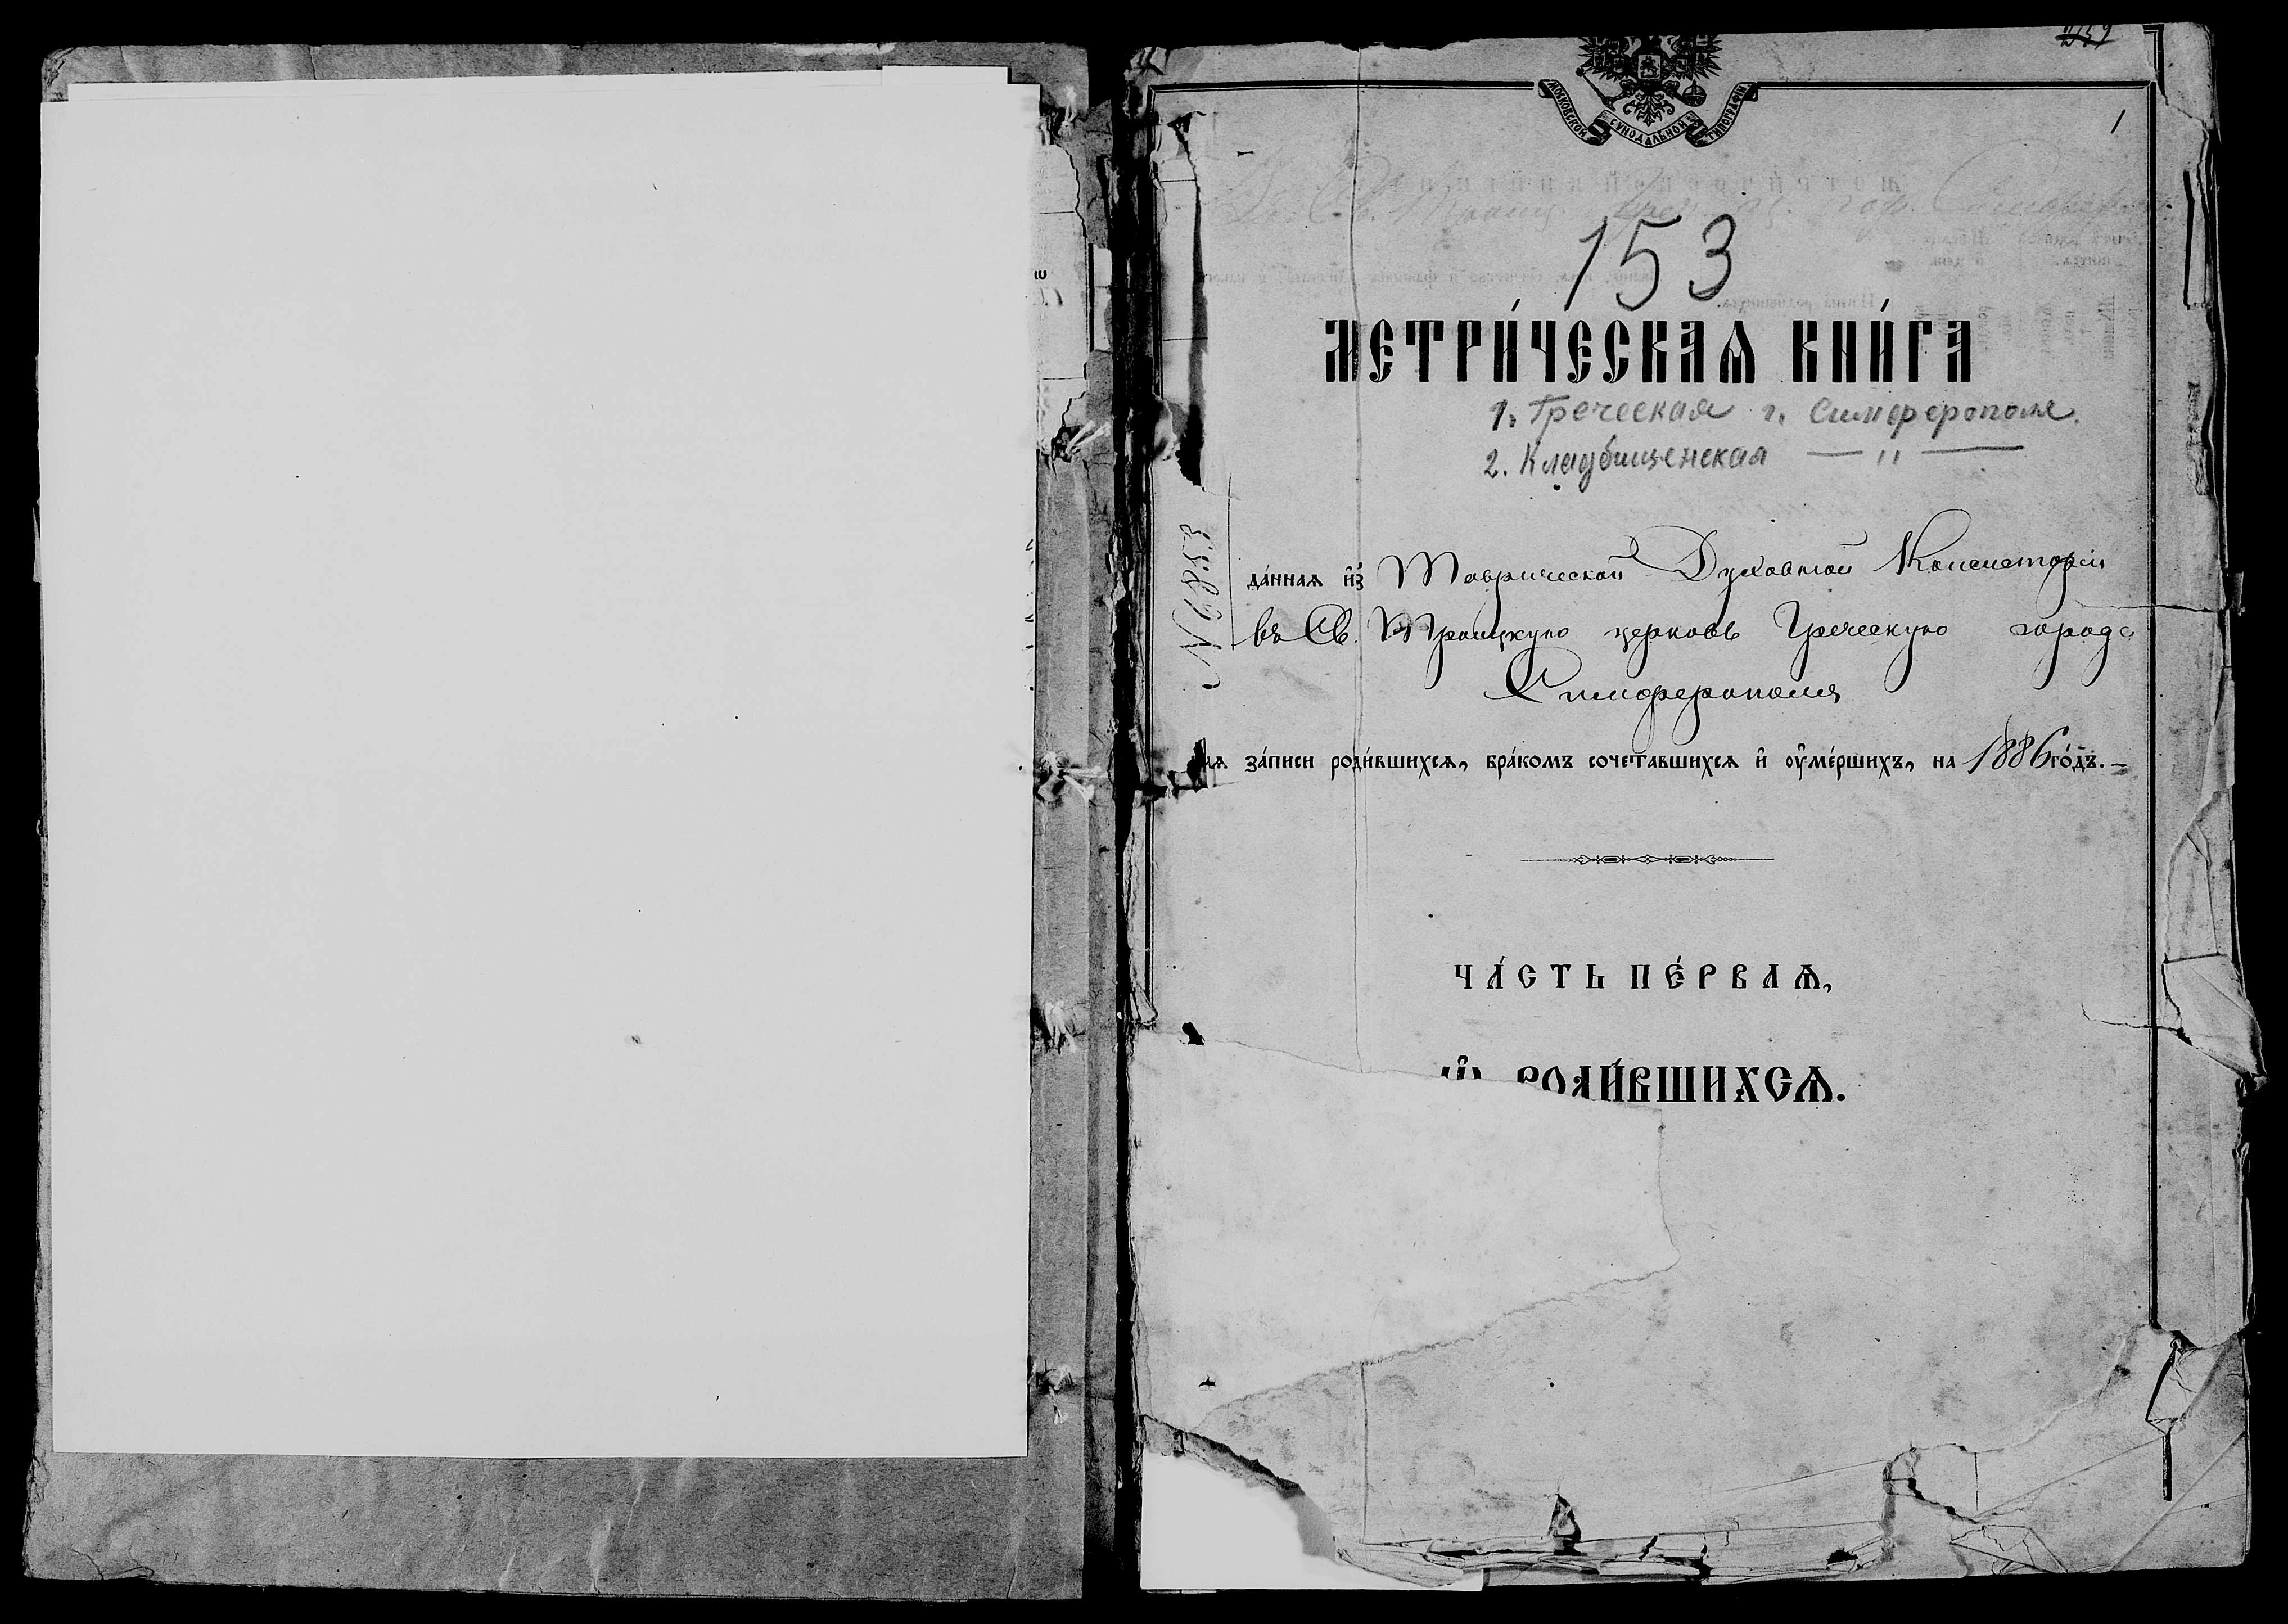 1
МОСКОВСКОЙ СѴНОДАЛЬНОЙ ТИПОГРАФІИ
153
МЕТРИ́ЧЕСКАѦ КНИ́ГА
1. Греческая г. Симферополя.
2. Кладбищенская — " —
да́нная и҆з̾ Таврической Духовной Консисторіи
въ Св. Троицкую церковь Греческую города
Симферополя
за́писи роди́вшихсѧ, бра́комъ сочета́вшихсѧ и҆ ᲂу҆ме́ршихъ, на 1886 го́дъ.
ЧА́СТЬ ПЕ́РВАѦ,
Ѽ РОДИ́ВШИХСѦ.